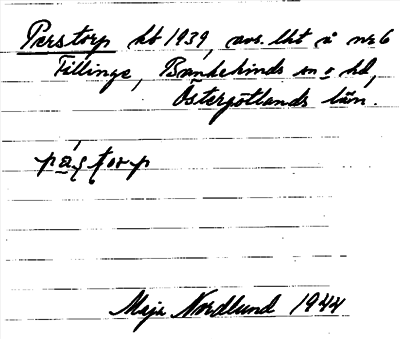 Perstorp hb 1939, avs. lht å nr 6
Fillinge, Bankekinds sn o hd,
Östergötlands län.
pæ̣ṣṭorp
Maja Nordlund 1944